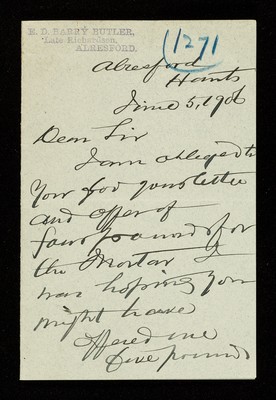 E. D. BARRY BUTLER,
Late Richardson,
ALRESFORD.
(1271
Alresford
Hants
June 5, 1906
Dear Sir
I am obliged to
you for your letter
and offer of
four pounds for
the Mortar I
was hoping you
might have
offered me
five pounds